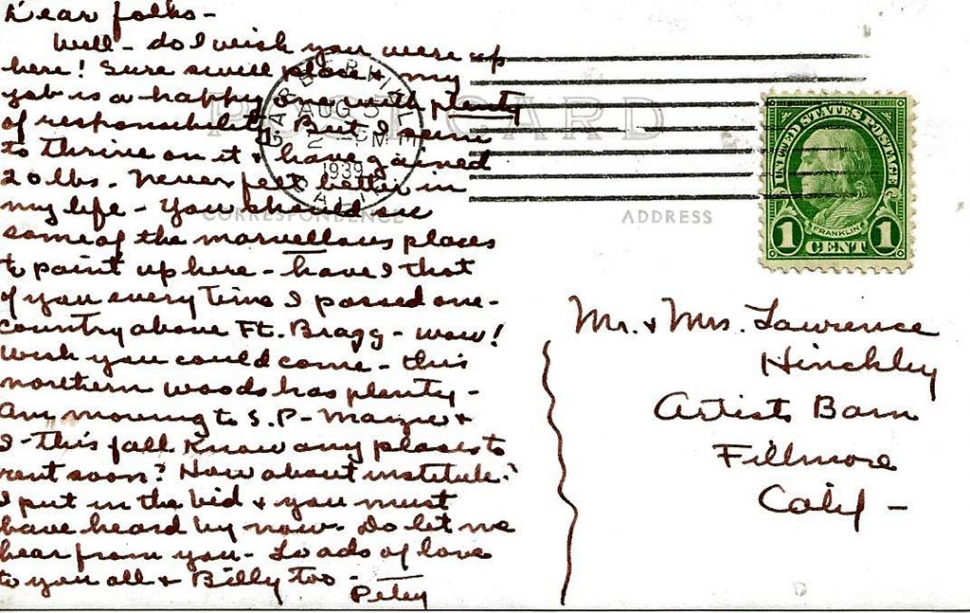 Dear folks -
Well - do I wish you were up
here! Sure swell place & my
job is a happy one with plenty
of responsibility. But I seem
to thrive on it & have gained
20 lbs - Never felt better in
my life - You should see
some of the marvellous places
to paint up here - have I that
of you every time I passed one -
country above Ft. Bragg - wow!
Wish you could come - this
northern woods has plenty -
Am moving to S.P. - &
I - this fall. Know any places to
rent soon? How about institute?
I put in the bid & you must
have heard by now. Do let me
hear from you - Loads of love
to you all & Billy too -
Petey
GARBERVILLE
AUG 3
2 PM
1939
CALIF.
POST CARD
CORRESPONDENCE
ADDRESS
UNITED STATES POSTAGE
FRANKLIN
1 CENT 1
Mr. & Mrs. Lawrence
Hinckley
Artists Barn
Fillmore
Calif -